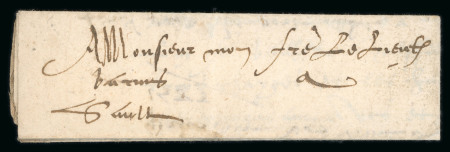 A Monsieur mon frè Le Lieut
barnus a
Sault